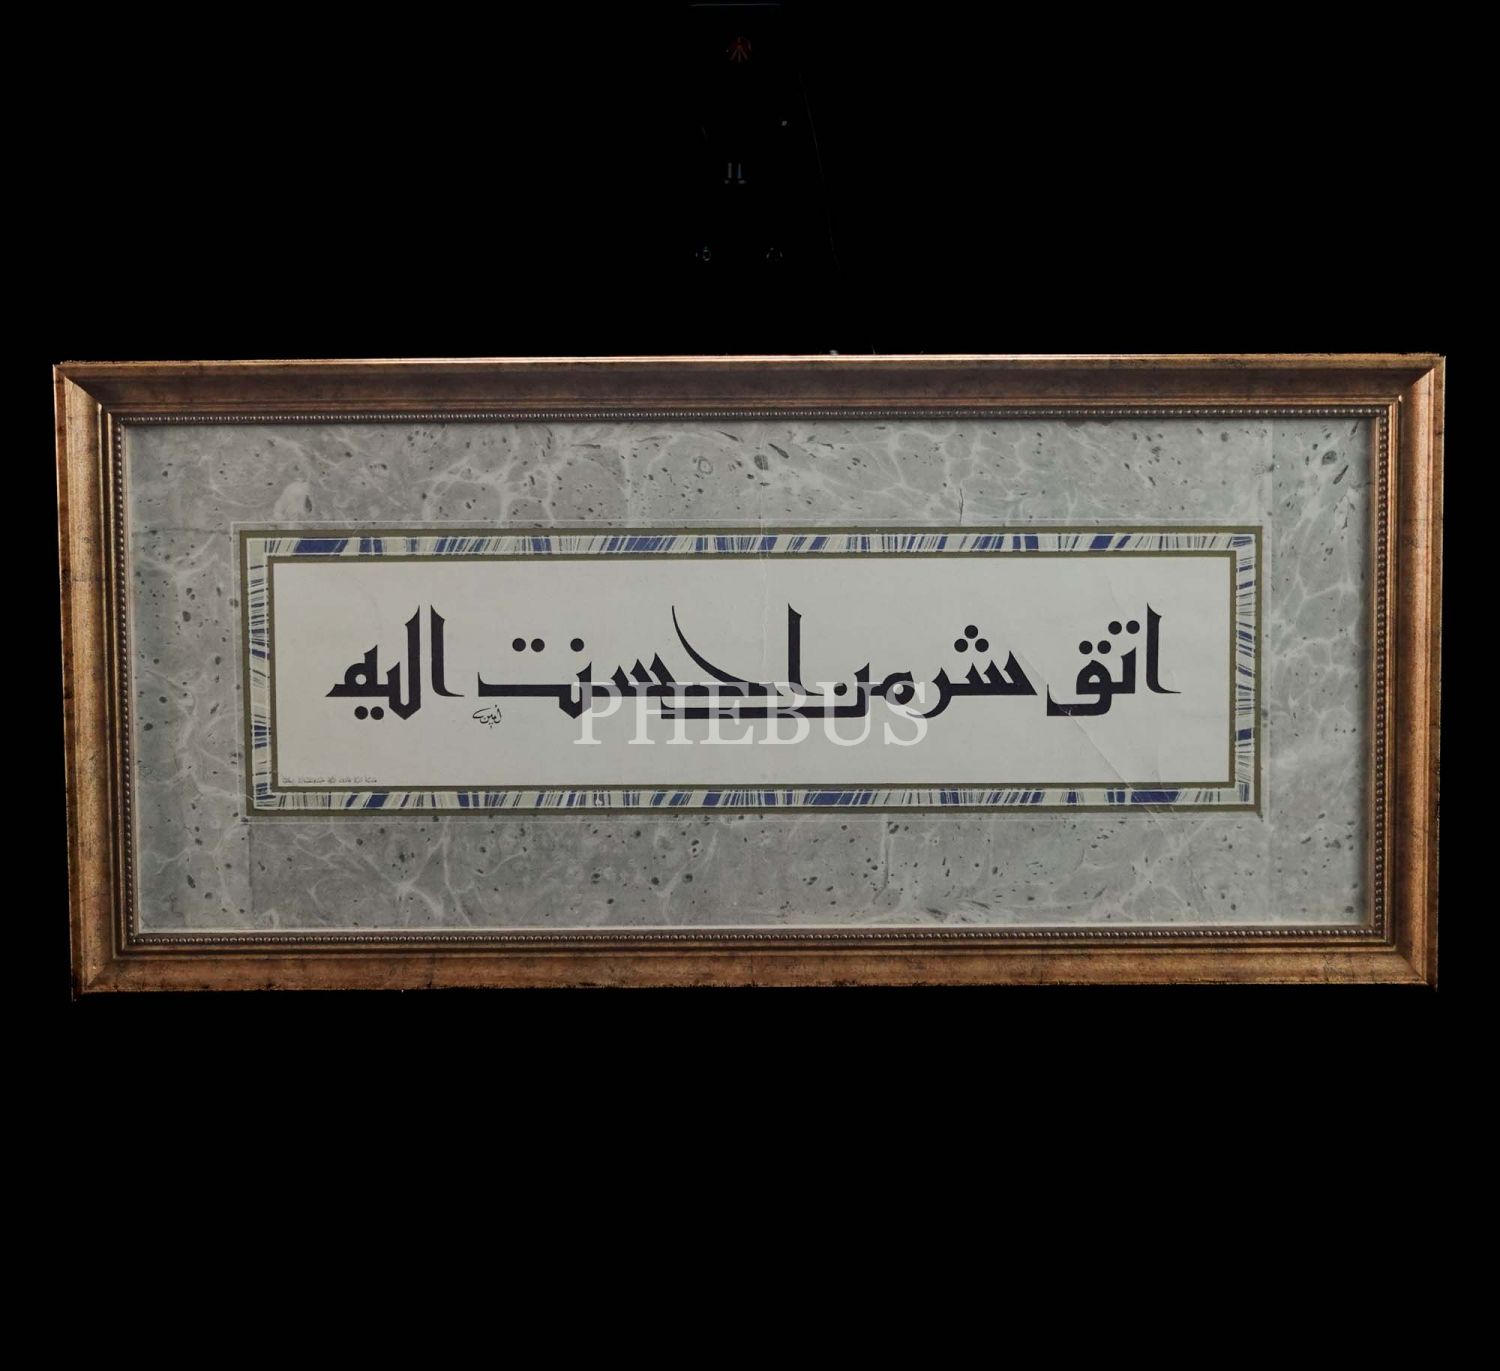 اتق شر من احسنت اليه
امين
PHEBUS